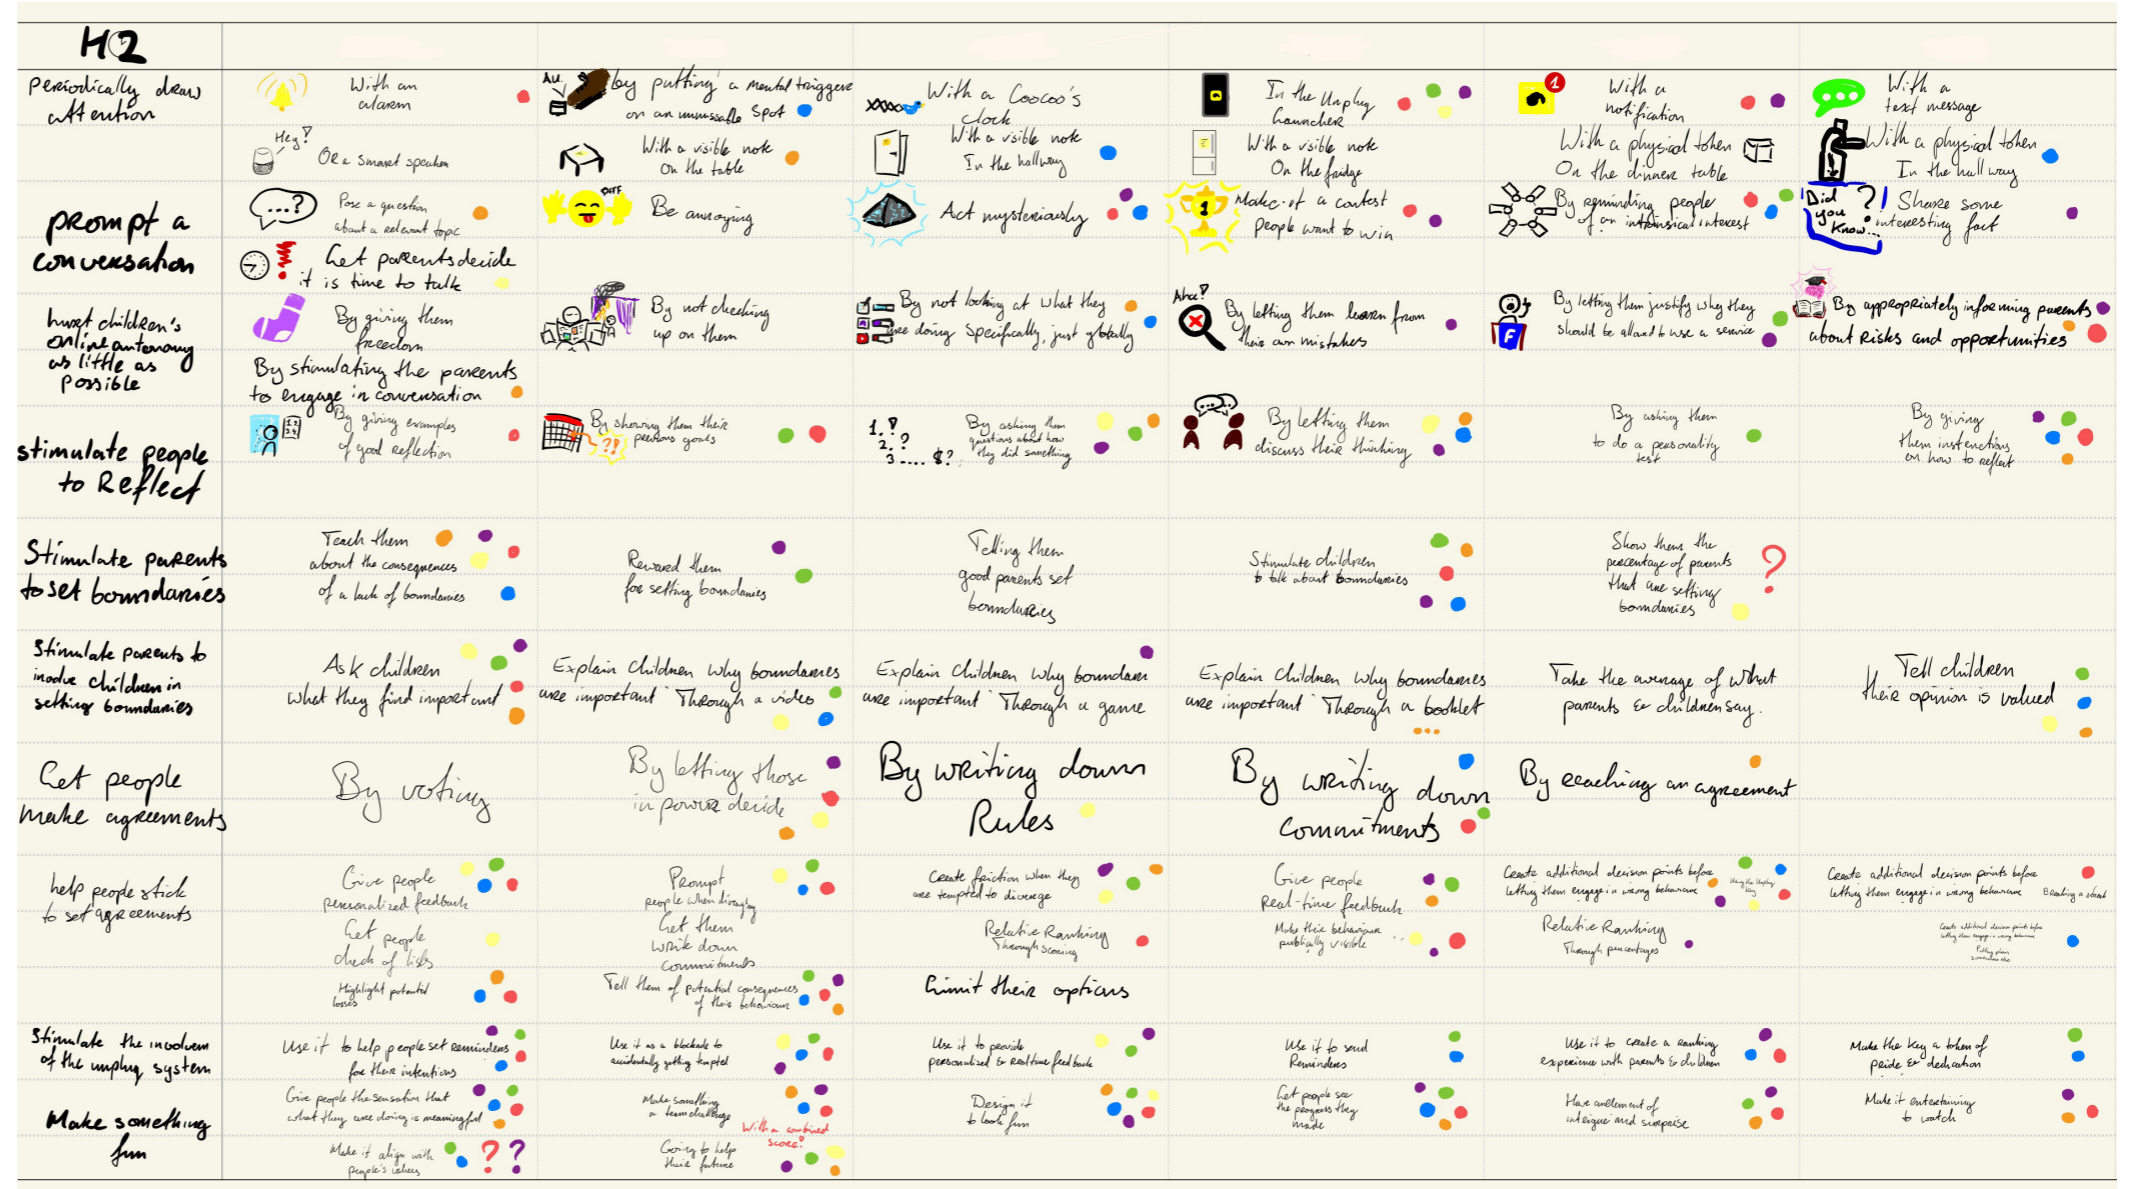 H2
Periodically draw
attention
With an
alarm
AU
by putting a mental triggere
on an unmissable spot
With a Coocoo's
clock
In the Unplug
Launcher
1
With a
notification
With a
text message
Hey!
Or a smart speaker
With a visible note
On the table
With a visible note
In the hallway
With a visible note
On the fridge
With a physical token
On the dinner table
With a physical token
In the hallway
prompt a
conversation
...?
Pose a question
about a relevant topic
Be annoying
Act mysteriously
1
Make it a contest
people want to win
By reminding people
of an intrinsical interest
Did
you
know...
?!
Share some
interesting fact
Let parents decide
it is time to talk
hurt children's
online autonomy
as little as
possible
By giving them
freedom
By not checking
up on them
By not looking at what they
are doing specifically, just globally
Aha!
By letting them learn from
their own mistakes
F
By letting them justify why they
should be allowed to use a service
By appropriately informing parents
about Risks and opportunities
By stimulating the parents
to engage in conversation
stimulate people
to Reflect
By giving examples
of good reflection
??
By showing them their
previous goals
1. !
2. ?
3 .... $?
By asking them
questions about how
they did something
By letting them
discuss their thinking
By asking them
to do a personality
test
By giving
them instructions
on how to reflect
Stimulate parents
to set boundaries
Teach them
about the consequences
of a lack of boundaries
Reward them
for setting boundaries
Telling them
good parents set
boundaries
Stimulate children
to talk about boundaries
Show them the
percentage of parents
that are setting
boundaries
?
Stimulate parents to
involve children in
setting boundaries
Ask children
what they find important
Explain Children why boundaries
are important Through a video
Explain Children why boundaries
are important Through a game
Explain Children why boundaries
are important Through a booklet
...
Take the average of what
parents & children say.
Tell children
their opinion is valued
Let people
make agreements
By voting
By letting those
in power decide
By writing down
Rules
By writing down
commitments
By reaching an agreement
help people stick
to set agreements
Give people
personalized feedback
Prompt
people when diverging
Create friction when they
are tempted to diverge
Give people
real-time feedback
Create additional decision points before
letting them engage in wrong behaviour
Using the Unplug
key
Create additional decision points before
letting them engage in wrong behaviour
Let people
check of lists
Let them
write down
commitments
Relative Ranking
Through scoring
Make their behaviour
publically visible
Relative Ranking
Through percentages
Create additional decision points before
letting them engage in wrong behaviour
Highlight potential
losses
Tell them of potential consequences
of their behaviour
Limit their options
Stimulate the involvem
of the unplug system
Use it to help people set reminders
for their intentions
Use it as a blockade to
accidentally getting tempted
Use it to provide
personalized & realtime feedback
Use it to send
Reminders
Use it to create a ranking
experience with parents & children
Make the key a token of
pride & dedication
Make something
fun
Give people the sensation that
what they are doing is meaningful
Make something
a teamchallenge
With a combined
score?
Design it
to look fun
Let people see
the progress they
made
Have an element of
intrigue and surprise
Make it entertaining
to watch
Make it align with
people's values
? ?
Going to help
their future